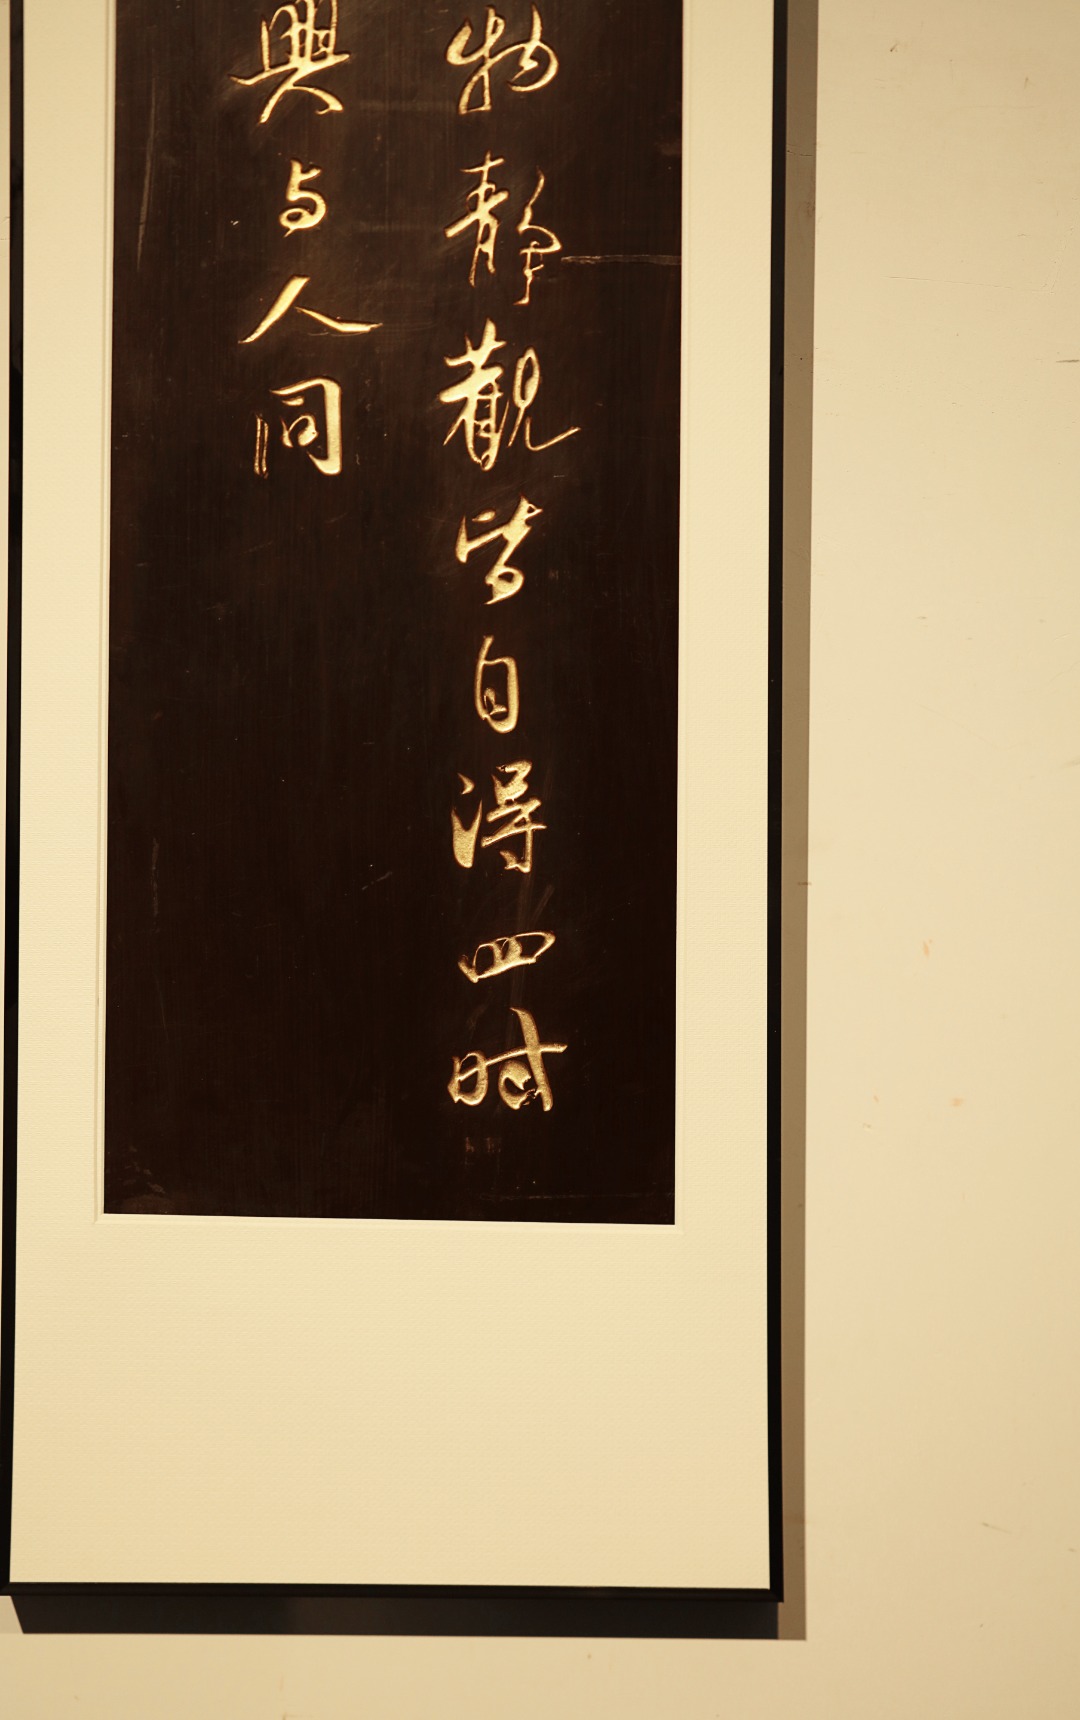 物静觀皆自得四时
興与人同